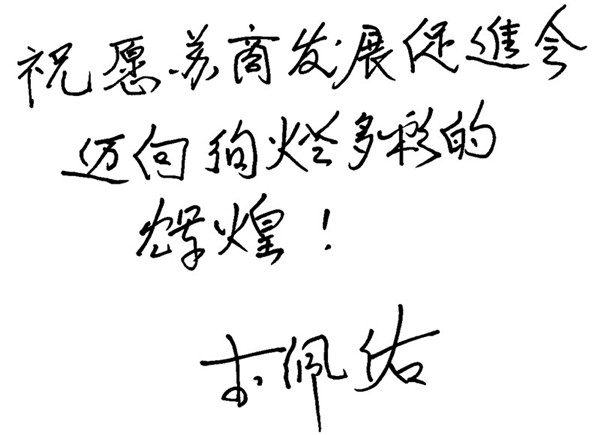 祝愿苏商发展促進会
迈向绚烂多彩的
辉煌！
佩佑